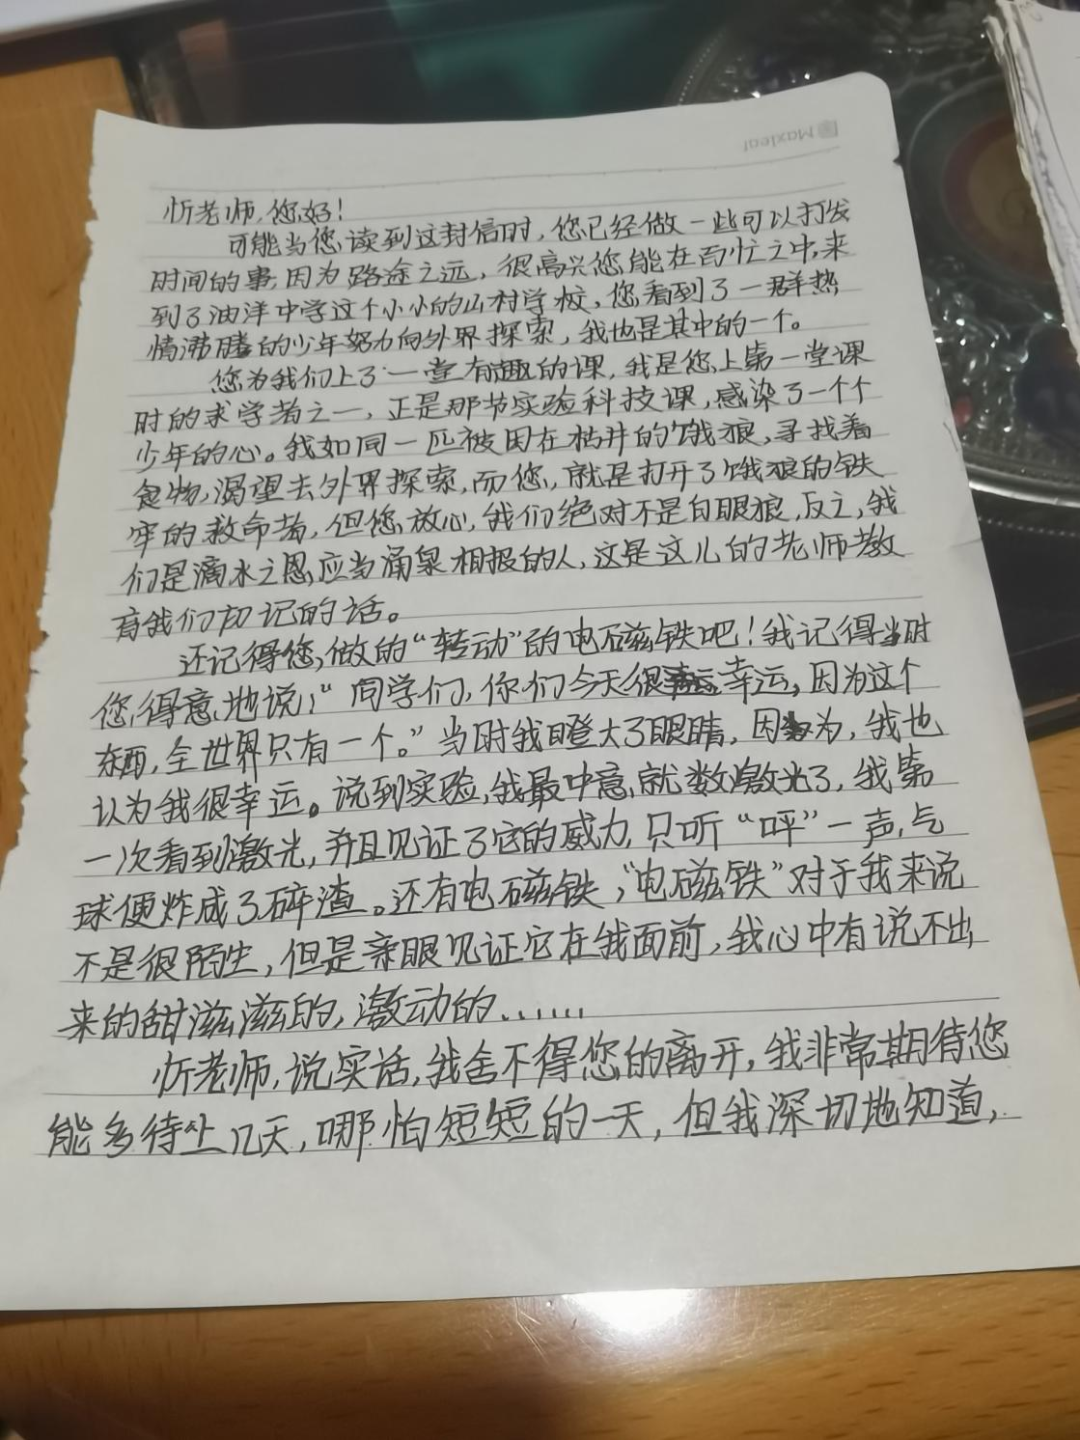 Maxleaf
忻老师,您好!
可能当您读到这封信时,您已经做一些可以打发
时间的事,因为路途之远,很高兴您能在百忙之中,来
到了油洋中学这个小小的山村学校,您看到了一群热
情沸腾的少年努力向外界探索,我也是其中的一个。
您为我们上了一堂有趣的课,我是您上第一堂课
时的求学者之一,正是那节实验科技课,感染了一个个
少年的心。我如同一匹被困在枯井的饿狼,寻找着
食物,渴望去外界探索,而您,就是打开了饿狼的铁
牢的救命者,但您放心,我们绝对不是白眼狼,反之,我
们是滴水之恩,应当涌泉相报的人,这是这儿的老师教
育我们切记的话。
还记得您,做的“转动”的电磁铁吧!我记得当时
您,得意地说,“同学们,你们今天很幸运,因为这个
东西,全世界只有一个。”当时我瞪大了眼睛,因为,我也
认为我很幸运。说到实验,我最中意,就数激光了,我第
一次看到激光,并且见证了它的威力,只听“呯”一声,气
球便炸成了碎渣。还有电磁铁,“电磁铁”对于我来说
不是很陌生,但是亲眼见证它在我面前,我心中有说不出
来的甜滋滋的,激动的......
忻老师,说实话,我舍不得您的离开,我非常期待您
能多待上几天,哪怕短短的一天,但我深切地知道,